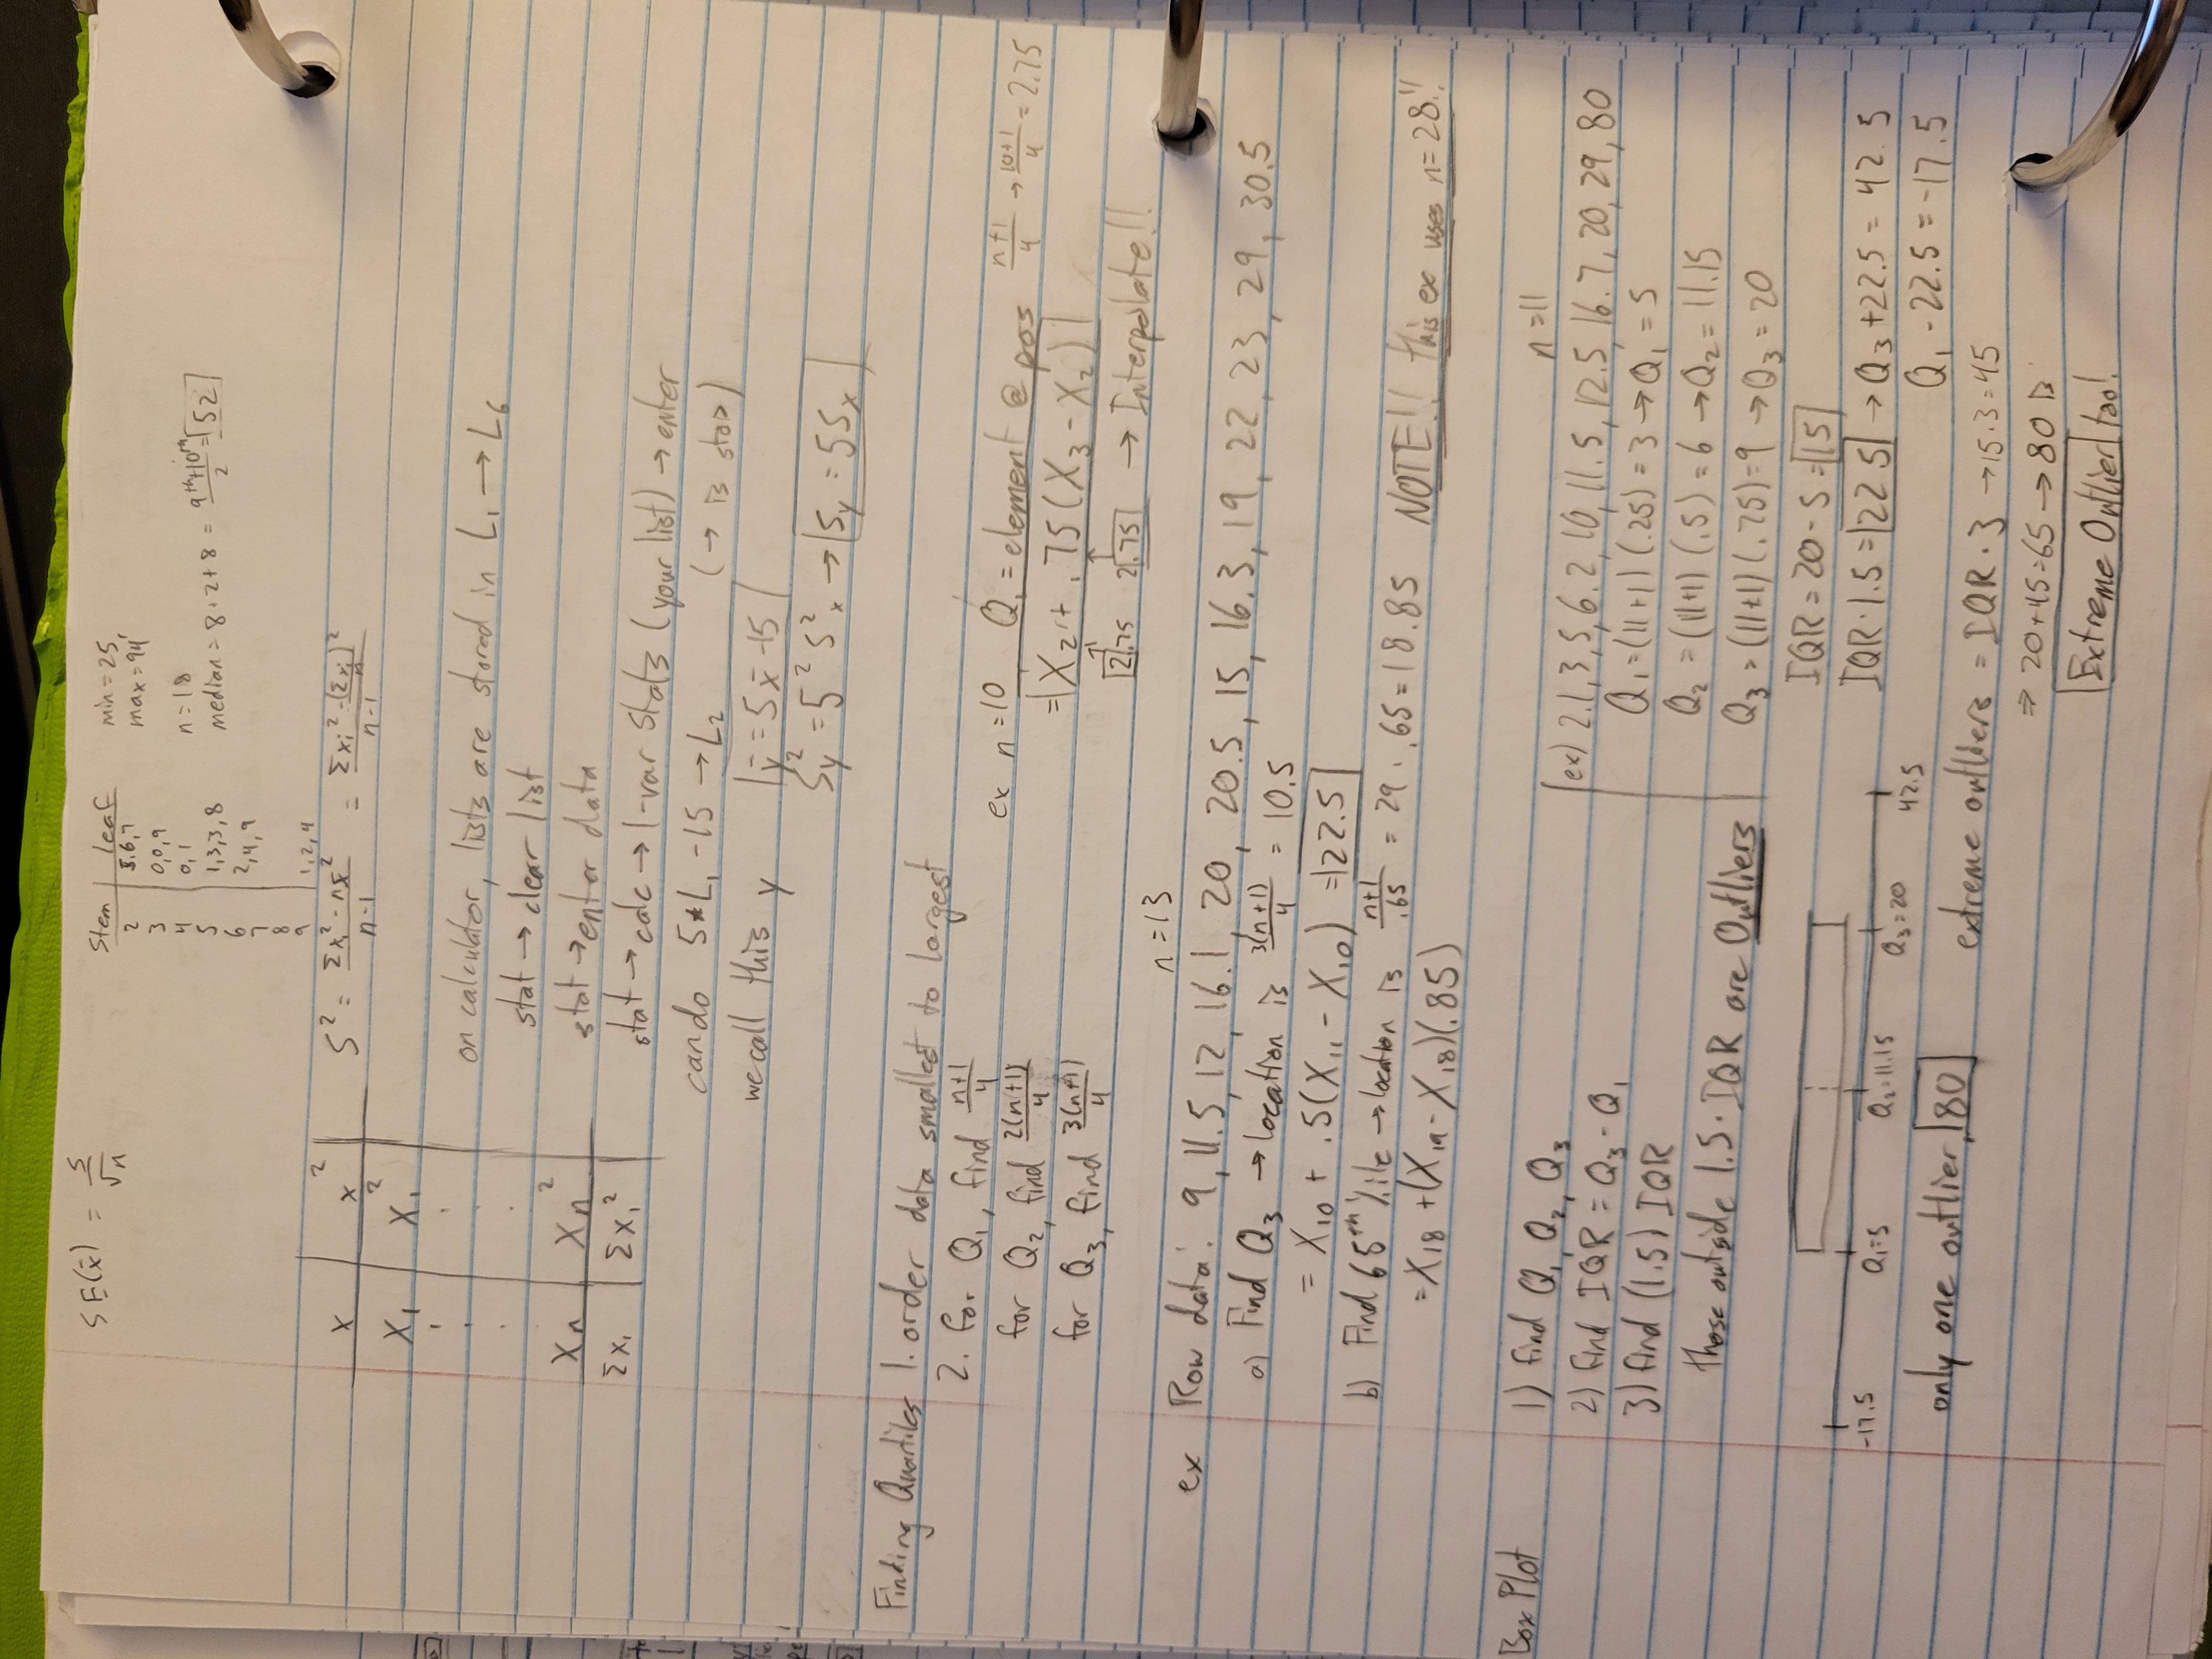 SE(x̄) = s/√n
Stem | leaf
2 | 5,6,7
3 | 0,0,9
4 | 0,1
5 | 1,3,3,8
6 | 2,4,9
7
8
9 | 1,2,4
min = 25,
max = 94
n = 18
median = 8+2+8 = (9th+10th)/2 = 52
x | x²
x₁ | x₁²
xₙ | xₙ²
Σxᵢ | Σxᵢ²
S² = (Σxᵢ² - nx̄²)/(n-1) = (Σxᵢ² - (Σxᵢ)²/n)/(n-1)
on calculator, lists are stored in L₁ → L₆
stat → clear list
stat → enter data
stat → calc → 1-var Stats (your list) → enter
can do 5*L₁ - 15 → L₂ (→ is sto>)
we call this y ȳ = 5x̄ - 15
S²y = 5² S²x → Sy = 5Sx
Finding Quartiles 1. order data smallest to largest
2. for Q₁, find (n+1)/4
for Q₂, find 2(n+1)/4
for Q₃, find 3(n+1)/4
ex n = 10 Q₁ = element @ pos (n+1)/4 → (10+1)/4 = 2.75
= X₂ + .75(X₃ - X₂)
2.75 2.75 → Interpolate!!
n = 13
ex Raw data: 9, 11.5, 12, 16.1, 20, 20.5, 15, 16.3, 19, 22, 23, 29, 30.5
a) Find Q₃ → location is 3(n+1)/4 = 10.5
= X₁₀ + .5(X₁₁ - X₁₀) = 22.5
b) Find 65th %ile → location is (n+1)/.65 = 29 · .65 = 18.85 NOTE!! this ex uses n = 28!!
= X₁₈ + (X₁₉ - X₁₈)(.85)
Box Plot
1) find Q₁, Q₂, Q₃
2) find IQR = Q₃ - Q₁
3) find (1.5) IQR
those outside 1.5 · IQR are Outliers
n = 11
ex) 2.1, 3, 5, 6.2, 10, 11.5, 12.5, 16.7, 20, 29, 80
Q₁ = (11+1)(.25) = 3 → Q₁ = 5
Q₂ = (11+1)(.5) = 6 → Q₂ = 11.15
Q₃ = (11+1)(.75) = 9 → Q₃ = 20
IQR = 20 - 5 = 15
IQR · 1.5 = 22.5 → Q₃ + 22.5 = 42.5
Q₁ - 22.5 = -17.5
-17.5 Q₁=5 Q₂=11.15 Q₃=20 42.5
only one outlier, 80
extreme outliers = IQR · 3 → 15·3 = 45
⇒ 20+45=65 → 80 is
Extreme Outlier too!